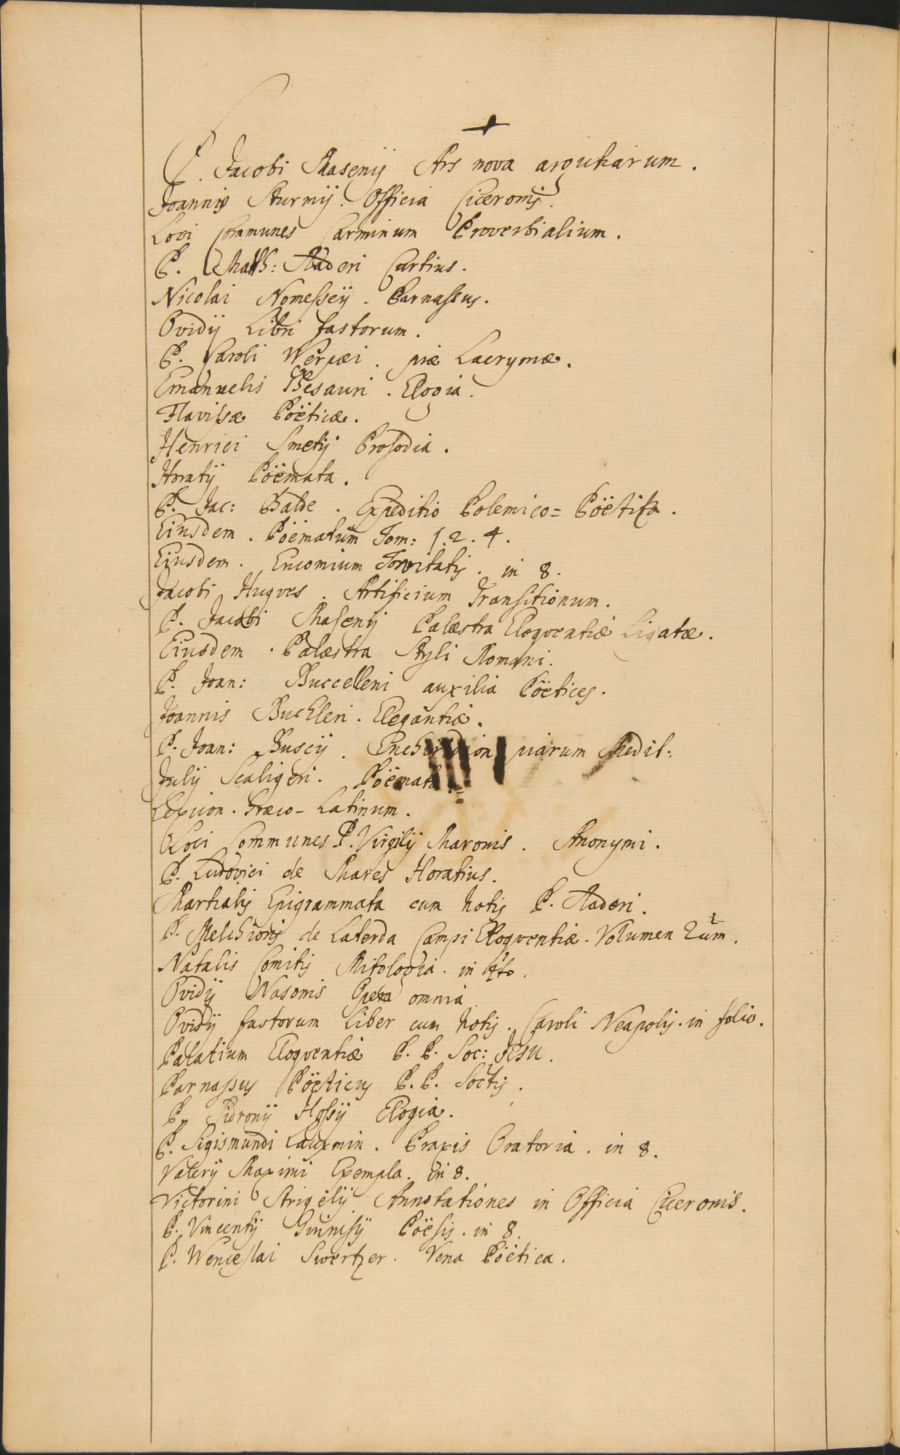 P. Jacobi Masenij Ars nova argutiarum.
Joannis Sturmij. Officia Ciceronis.
Loci Communes Carminum Proverbialium.
P. Math: Raderi Curtius.
Nicolai Nomesseÿ. Parnassus.
Ovidÿ Libri fastorum.
P. Caroli Werpæi. piæ Lacrymæ.
Emanuelis Thesauri. Elogia.
Flavissæ Poëticæ.
Henrici Smetÿ Prosodia.
Horatÿ Poëmata.
P. Jac: Balde. Expeditio Polemico= Poëtica.
Eiusdem. Poëmatum Tom: 1. 2. 4.
Eiusdem. Encomium Torvitatis. in 8.
Jacobi Hugves. Artificium Transitionum.
P. Jacobi Masenÿ Palæstra Eloqventiæ Ligatæ.
Eiusdem. Palæstra Styli Romani.
P. Joan: Buccelleni auxilia Poëtices.
Joannis Buchleri. Elegantiæ.
P. Joan: Buscÿ. Enchiridion piarum Medit:
Julÿ Scaligeri. Poëmata.
Lexicon. Græco-Latinum.
Loci Communes P. Virgilÿ Maronis. Anonymi.
P. Ludovici de Mares Horatius.
Martialis Epigrammata cum Notis P. Raderi.
P. Melchioris de Laterda Campi Eloqventiæ. Volumen 2um.
Natalis Comitis Mitologia. in 4to.
Ovidÿ Nasonis Opera omnia
Ovidÿ fastorum liber cum Notis. Caroli Neapolis. in folio.
Palatium Eloqventiæ P. P. Soc: Jesu.
Parnassus Poëticus P. P. Soctis.
P. Sidronÿ Hossÿ Elogia.
P. Sigismundi Lauxmin. Praxis Oratoria. in 8.
Valerÿ Maximi Exempla. in 8.
Victorini Strigelÿ Annotationes in Officia Ciceronis.
P. Vincentÿ Guinisÿ Poësis. in 8.
P. Wenceslai Swertzer. Vena Poëtica.